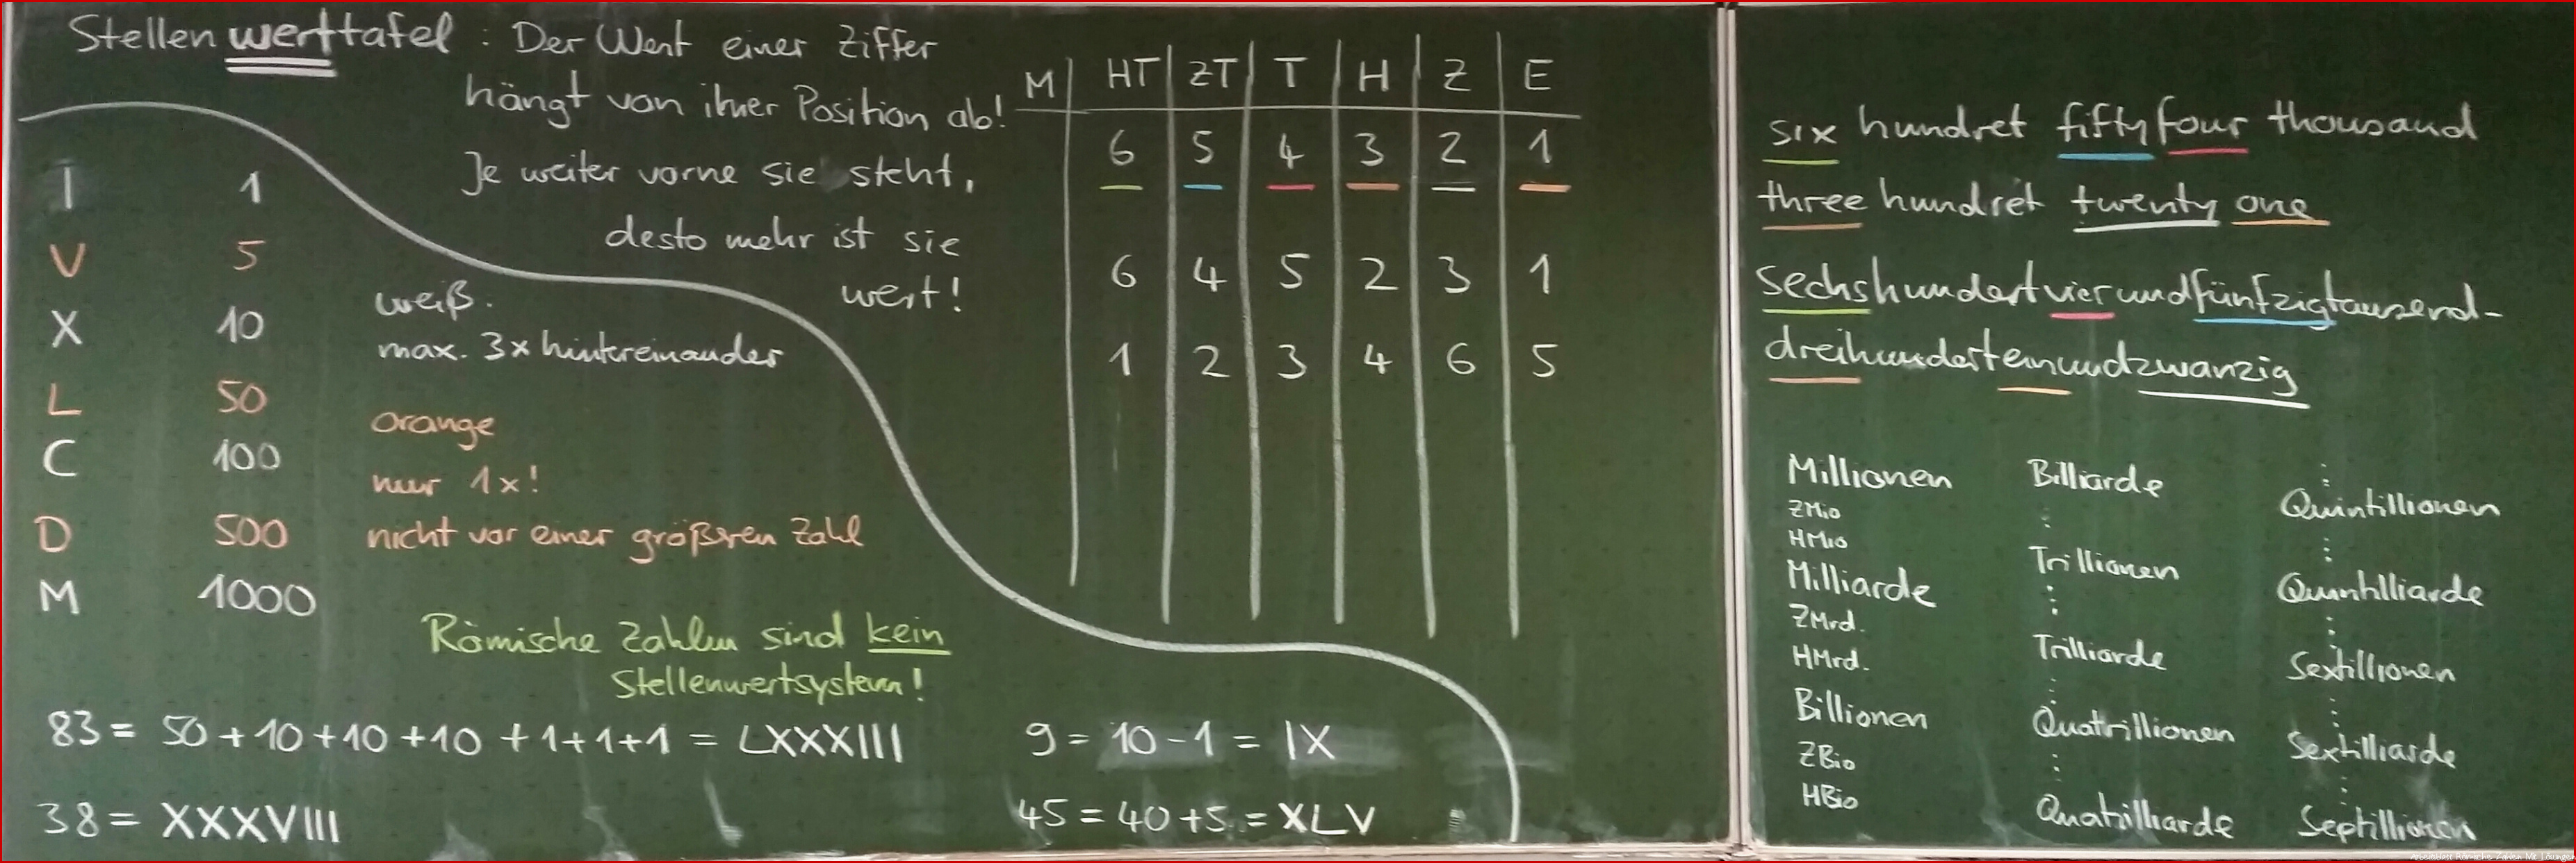 Stellenwerttafel : Der Wert einer Ziffer
hängt von ihrer Position ab!
Je weiter vorne sie steht,
desto mehr ist sie
wert!
M HT ZT T H Z E
6 5 4 3 2 1
6 4 5 2 3 1
1 2 3 4 6 5
I 1
V 5
X 10
L 50
C 100
D 500
M 1000
weiß.
max. 3x hintereinander
orange
nur 1x!
nicht vor einer größeren Zahl
Römische Zahlen sind kein
Stellenwertsystem!
83 = 50 + 10 + 10 + 10 + 1 + 1 + 1 = LXXXIII
38 = XXXVIII
9 = 10 - 1 = IX
45 = 40 + 5 = XLV
six hundret fifty four thousand
three hundret twenty one
sechshundertvierundfünfzigtausend-
dreihunderteinundzwanzig
Millionen
ZMio
HMio
Milliarde
ZMrd.
HMrd.
Billionen
ZBio
HBio
Billiarde
:
Trillionen
:
Trilliarde
:
Quatrillionen
:
Quatrilliarde
:
Quintillionen
:
Quintilliarde
:
Sextillionen
:
Sextilliarde
:
Septillionen